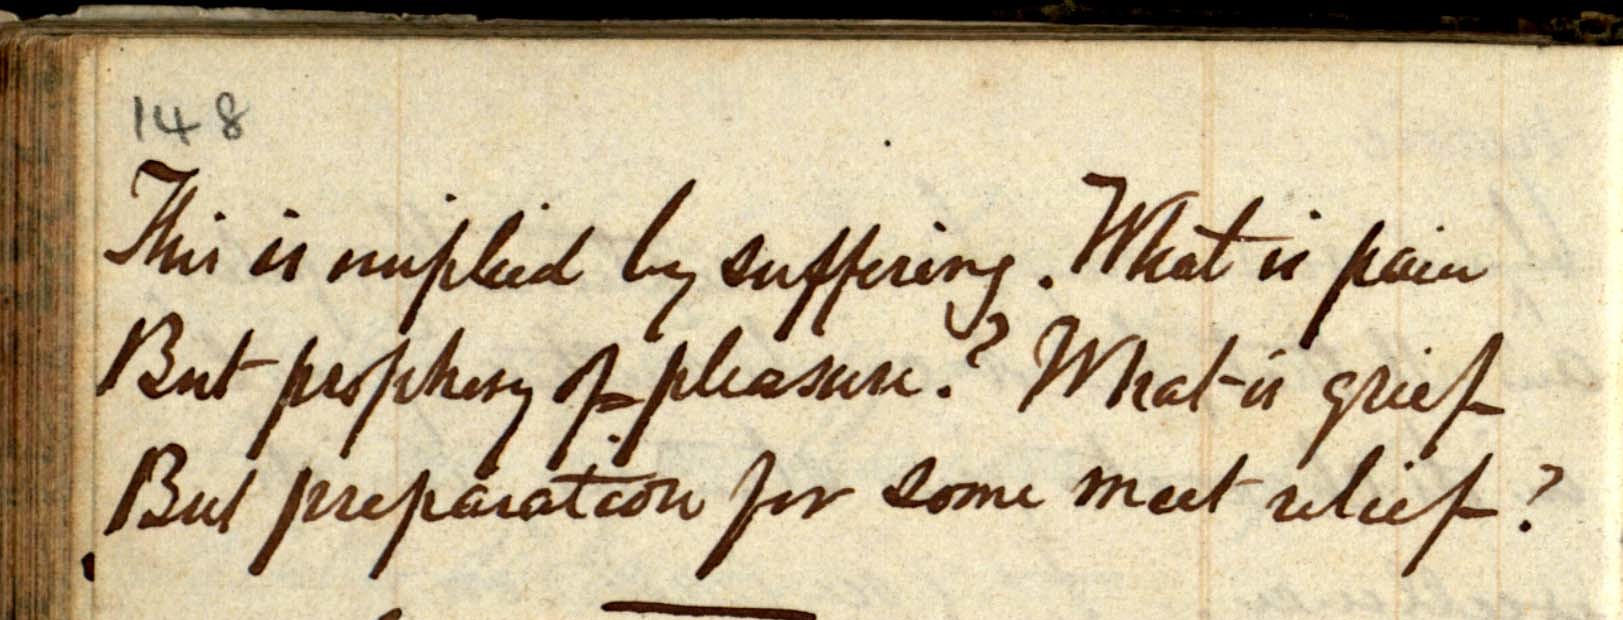 148
This is implied by suffering. What is pain
But prophesy of pleasure? What is grief
But preparation for some meet relief?